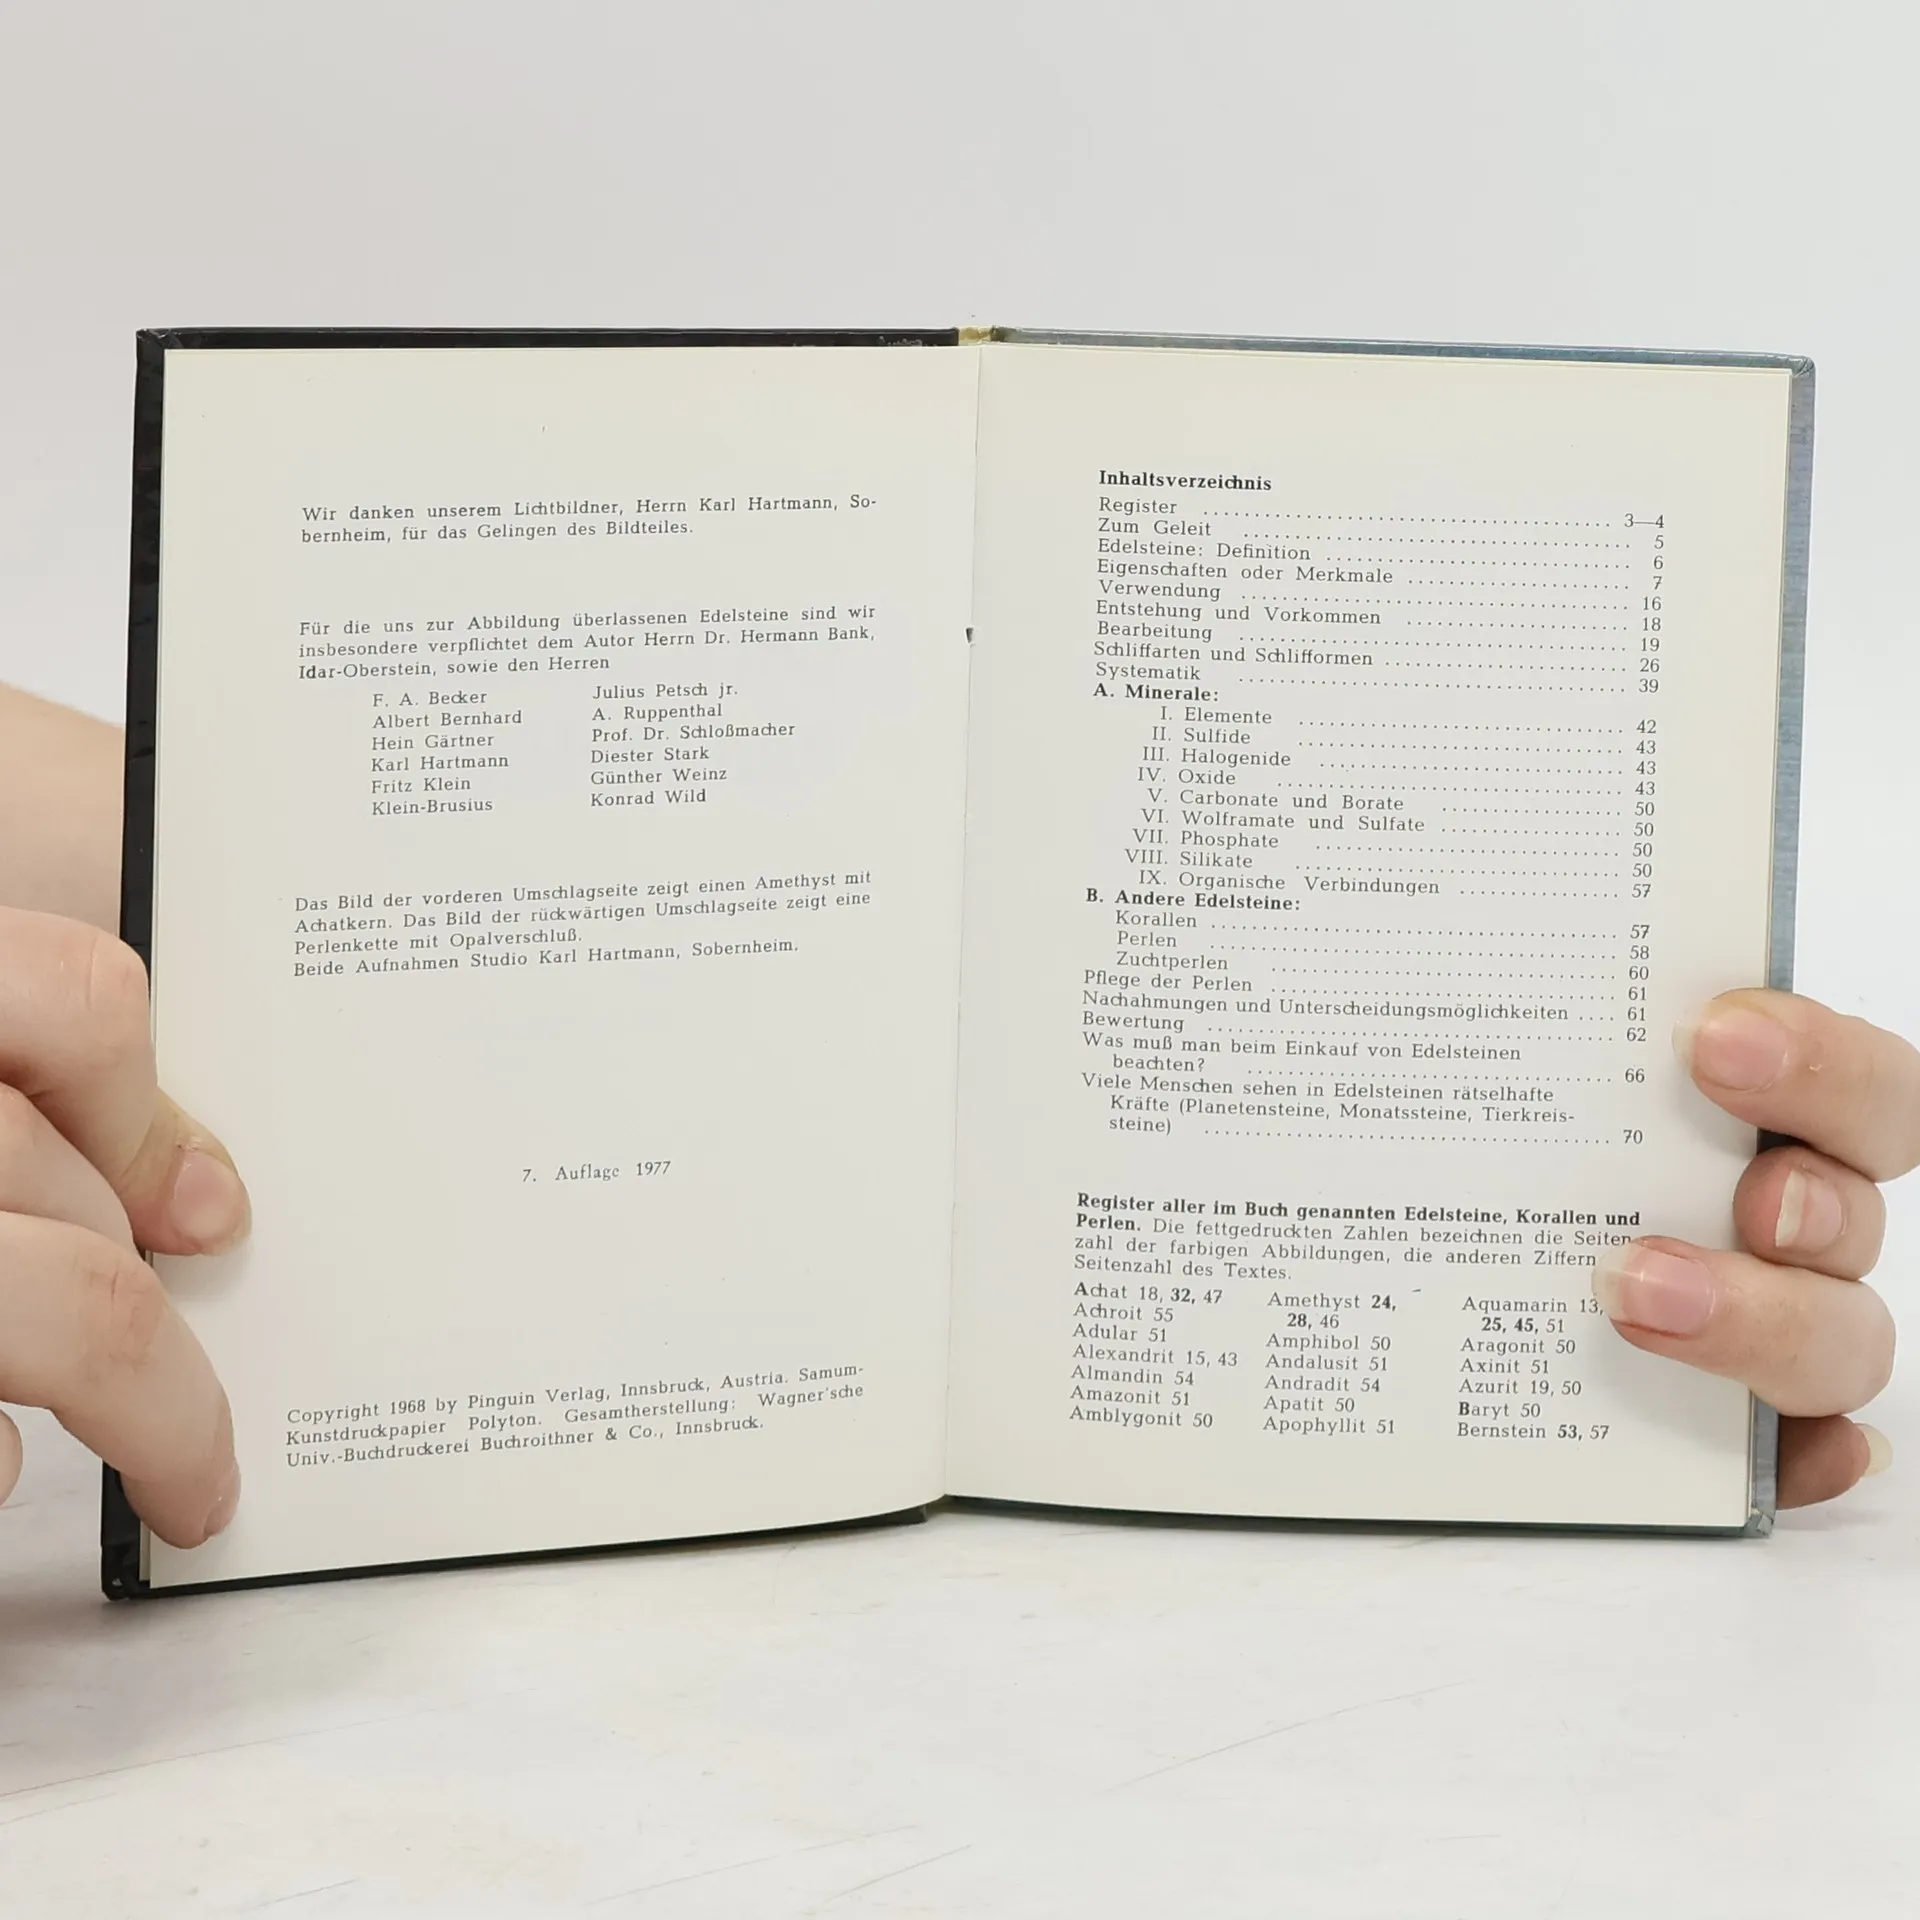 Wir danken unserem Lichtbildner, Herrn Karl Hartmann, So-
bernheim, für das Gelingen des Bildteiles.
Für die uns zur Abbildung überlassenen Edelsteine sind wir
insbesondere verpflichtet dem Autor Herrn Dr. Hermann Bank,
Idar-Oberstein, sowie den Herren
F. A. Becker
Albert Bernhard
Hein Gärtner
Karl Hartmann
Fritz Klein
Klein-Brusius
Julius Petsch jr.
A. Ruppenthal
Prof. Dr. Schloßmacher
Diester Stark
Günther Weinz
Konrad Wild
Das Bild der vorderen Umschlagseite zeigt einen Amethyst mit
Achatkern. Das Bild der rückwärtigen Umschlagseite zeigt eine
Perlenkette mit Opalverschluß.
Beide Aufnahmen Studio Karl Hartmann, Sobernheim.
7. Auflage 1977
Copyright 1968 by Pinguin Verlag, Innsbruck, Austria. Samum-
Kunstdruckpapier Polyton. Gesamtherstellung: Wagner'sche
Univ.-Buchdruckerei Buchroithner & Co., Innsbruck.
Inhaltsverzeichnis
Register ........ 3—4
Zum Geleit ........ 5
Edelsteine: Definition ........ 6
Eigenschaften oder Merkmale ........ 7
Verwendung ........ 16
Entstehung und Vorkommen ........ 18
Bearbeitung ........ 19
Schliffarten und Schlifformen ........ 26
Systematik ........ 39
A. Minerale:
I. Elemente ........ 42
II. Sulfide ........ 43
III. Halogenide ........ 43
IV. Oxide ........ 43
V. Carbonate und Borate ........ 50
VI. Wolframate und Sulfate ........ 50
VII. Phosphate ........ 50
VIII. Silikate ........ 50
IX. Organische Verbindungen ........ 57
B. Andere Edelsteine:
Korallen ........ 57
Perlen ........ 58
Zuchtperlen ........ 60
Pflege der Perlen ........ 61
Nachahmungen und Unterscheidungsmöglichkeiten .... 61
Bewertung ........ 62
Was muß man beim Einkauf von Edelsteinen
beachten? ........ 66
Viele Menschen sehen in Edelsteinen rätselhafte
Kräfte (Planetensteine, Monatssteine, Tierkreis-
steine) ........ 70
Register aller im Buch genannten Edelsteine, Korallen und
Perlen. Die fettgedruckten Zahlen bezeichnen die Seiten
zahl der farbigen Abbildungen, die anderen Ziffern
Seitenzahl des Textes.
Achat 18, 32, 47
Achroit 55
Adular 51
Alexandrit 15, 43
Almandin 54
Amazonit 51
Amblygonit 50
Amethyst 24,
28, 46
Amphibol 50
Andalusit 51
Andradit 54
Apatit 50
Apophyllit 51
Aquamarin 13,
25, 45, 51
Aragonit 50
Axinit 51
Azurit 19, 50
Baryt 50
Bernstein 53, 57